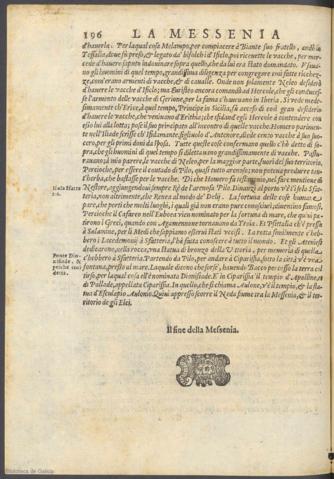 196 LA MESSENIA
d'hauerle. Per laqual cosa Melampo, per compiacere à Biante suo fratello, andò in
Tessalia, doue fu preso, & legato da' bifolchi d'Isiclo, poi riceuette le vacche, per mer-
cede d'hauere saputo indouinare sopra quello, che da lui era stato domandato. Vsaua-
no gli huomini di quel tempo, grandissima diligenza per congregare così fatte ricchez-
ze, anzi erano armenti di vacche, & di caualle. Onde non pilamente Neleo desiderò
d'hauere le vacche d'Isiclo; ma Euristeo ancora comandò ad Hercole, che gli condu-
cesse l'armento delle vacche di Gerione, per la fama c'haueuano in Iberia. Si vede mede-
simamente ch'Erice, à quel tempo, Principe in Sicilia, fu acceso di così gran desiderio
d'hauere le vacche, che veniuano d'Erithia; che sfidando egli Hercole à contendere con
esso lui alla lotta; pose il suo principato all'incontro di quelle vacche. Homero parimen-
te nell'Iliade scrisse ch'Isidamante, figliuolo d'Antenore, diede cento vacche à suo suo-
cero, per gli primi doni da sposo. Tutte queste cose confermano quello ch'è detto di so-
pra, che gli huomini di quei tempo si dilettauano grandissimamente di vacche. Pastu-
rauano, à mio parere, le vacche di Neleo, per la maggior parte, fuori del suo territorio,
Percioche, per essere il contado di Pilo, quasi tutto arenoso; non poteua produrre tan-
t'herba, che bastasse per le vacche. Di che Homero fa testimonio, nel fare mentione di
Nestore, aggiungendoui sempre Re de l'arenosa Pilo. Dinanzi al porto v'è l'Isola Sfat-
teria, non altrimenti, che Renea al modo de' Delij. La fortuna delle cose humane
pare, che porti che molti luoghi, i quali già non erano pure conosciuti; diuenino famosi.
Percioche il Cafareo nell'Euboea vien nominato per la fortuna di mare, che qui pa-
tirono i Greci, quando con Agamennone tornauano da Troia. Et Psittalia ch'è presso
à Salamine, per li Medi che sappiamo essere stati iui vccisi. La rotta similmente c'heb-
bero i Lacedemoni à Sfatteria, l'hà fatta conoscere à tutto il mondo. Et gli Ateniesi
dedicarono, nella rocca, vna statua di bronzo della Vittoria, per memoria di quella
c'hebbero à Sfatteria. Partendo da Pilo, per andare à Ciparissia, sotto la città v'è vna
fontana, presso al mare. Laquale dicono che sorse, hauendo Bacco percossa la terra col
tirso, per laqual cosa ella è nominata Dionisiade. E in Ciparissia il tempio d'Apolline, &
di Pallade, appellata Ciparissia. In quello, che si chiama Aulone, v'è il tempio, & la sta-
tua d'Esculapio Aulonio. Quiui appresso scorre il Neda fiume tra la Messenia, & il ter-
ritorio de gli Elei.
Isola Sfatte-
ria.
Fonte Dio-
nisiade, &
perche così
detta.
Il fine della Messenia.
Biblioteca de Galicia